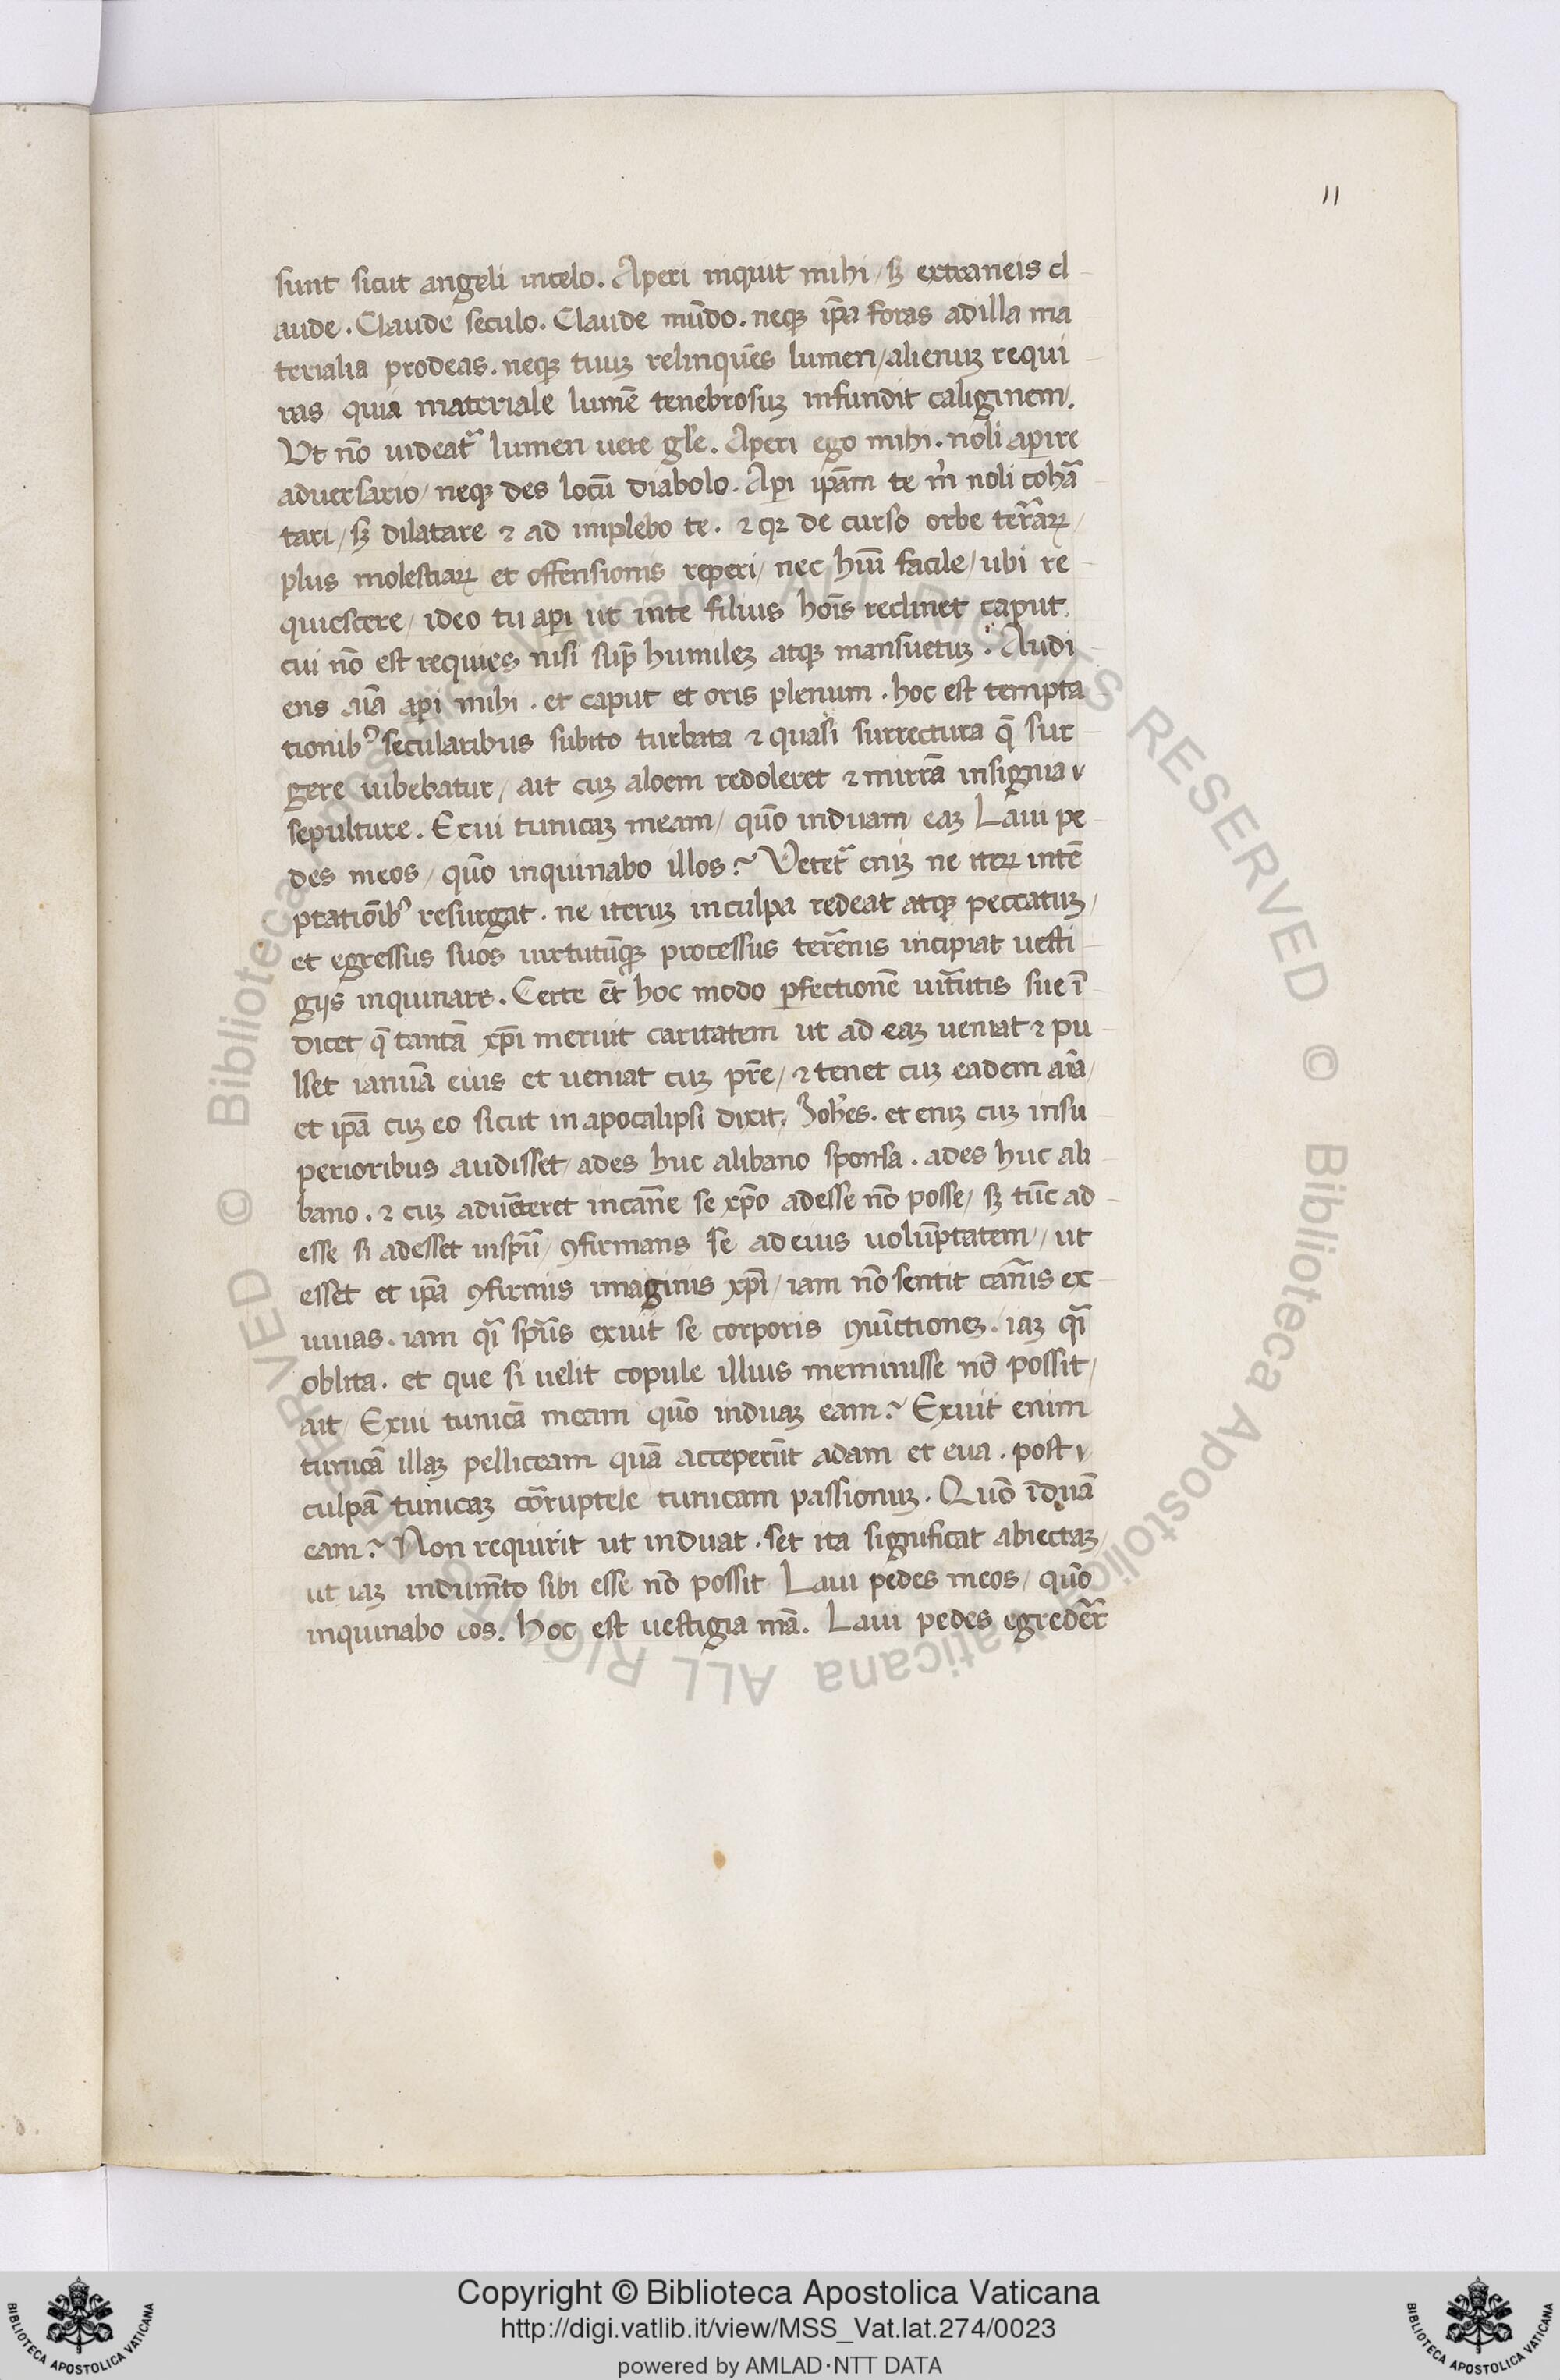 11
sunt sicut angeli incelo. Aperi inquit mihi / sꝫ extraneis cl
aude. Claude seculo. Claude mūdo. neqꝫ ip̄a foras adilla ma
terialia prodeas. neqꝫ tuuꝫ relinquēs lumen / alienuꝫ requi
ras quia materiale lumē tenebrosuꝫ infundit caliginem.
Vt nō uideatᷣ lumen uere gl̄e. Aperi ego mihi. noli aperire
aduersario / neqꝫ des locū diabolo. Api ip̄am te m̄ noli cohᷓ
tari / sꝫ dilatare ⁊ ad implebo te. ⁊ qꝛ de curso orbe terraꝝ /
plus molestiaꝝ et offensionis reperi / nec hiū facile / ubi re
quiescere / ideo tu api ut inte filius hoīs reclinet caput
cui nō est requies nisi sup̄ humileꝫ atqꝫ mansuetuꝫ. Audi
ens aīa api mihi. et caput et oris plenum. hoc est tempta
tionibꝰ secularibus subito turbata ⁊ quasi surrectura q̄ sur
gere iubebatur / ait cuꝫ aloem redoleret ⁊ mirrā insignia
sepulture. Exui tunicaꝫ meam / quō induam eaꝫ Laui pe
des meos / quō inquinabo illos? Veretᷣ eniꝫ ne iteꝝ intē
ptatiōibꝰ resurgat. ne iteruꝫ inculpa redeat atqꝫ peccatuꝫ /
et egressus suos uirtutūqꝫ processus terrenis incipiat uesti
gijs inquinare. Certe et̄ hoc modo pfectionē uirtutis sue ī
dicet q̄ tantā xp̄i meruit caritatem ut ad eaꝫ ueniat ⁊ pu
lset ianuā eius et ueniat cuꝫ pr̄e / ⁊ tenet cuꝫ eadem aīa /
et ip̄a cuꝫ eo sicut in apocalipsi dixit. Joh̄es. et eniꝫ cuꝫ insu
perioribus audisset / ades huc alibano sponsa. ades huc ali
bano. ⁊ cuꝫ aduerteret incarne se xp̄o adesse nō posse / sꝫ tūc ad
esse si adesset insp̄u / ꝯfirmans se ad eius uolūptatem / ut
esset et ip̄a ꝯfirmis imaginis xp̄i / iam nō sentit carnis ex
uuias. iam qᷓi sp̄us exuit se corporis ꝯiūctioneꝫ. iaꝫ qᷓi
oblita. et que si uelit copule illius meminisse nō possit /
ait / Exui tunicā meam quō induaꝫ eam? Exuit enim
tunicā illaꝫ pelliceam quā acceperūt adam et eua. post
culpā tunicaꝫ corruptele tunicam passionuꝫ. Quō īduā
eam? Non requirit ut induat. set ita significat abiectaꝫ
ut iaꝫ indumēto sibi esse nō possit Laui pedes meos / quō
inquinabo eos. Hoc est uestigia mā. Laui pedes egrederᷣ
Copyright © Biblioteca Apostolica Vaticana
http://digi.vatlib.it/view/MSS_Vat.lat.274/0023
powered by AMLAD·NTT DATA